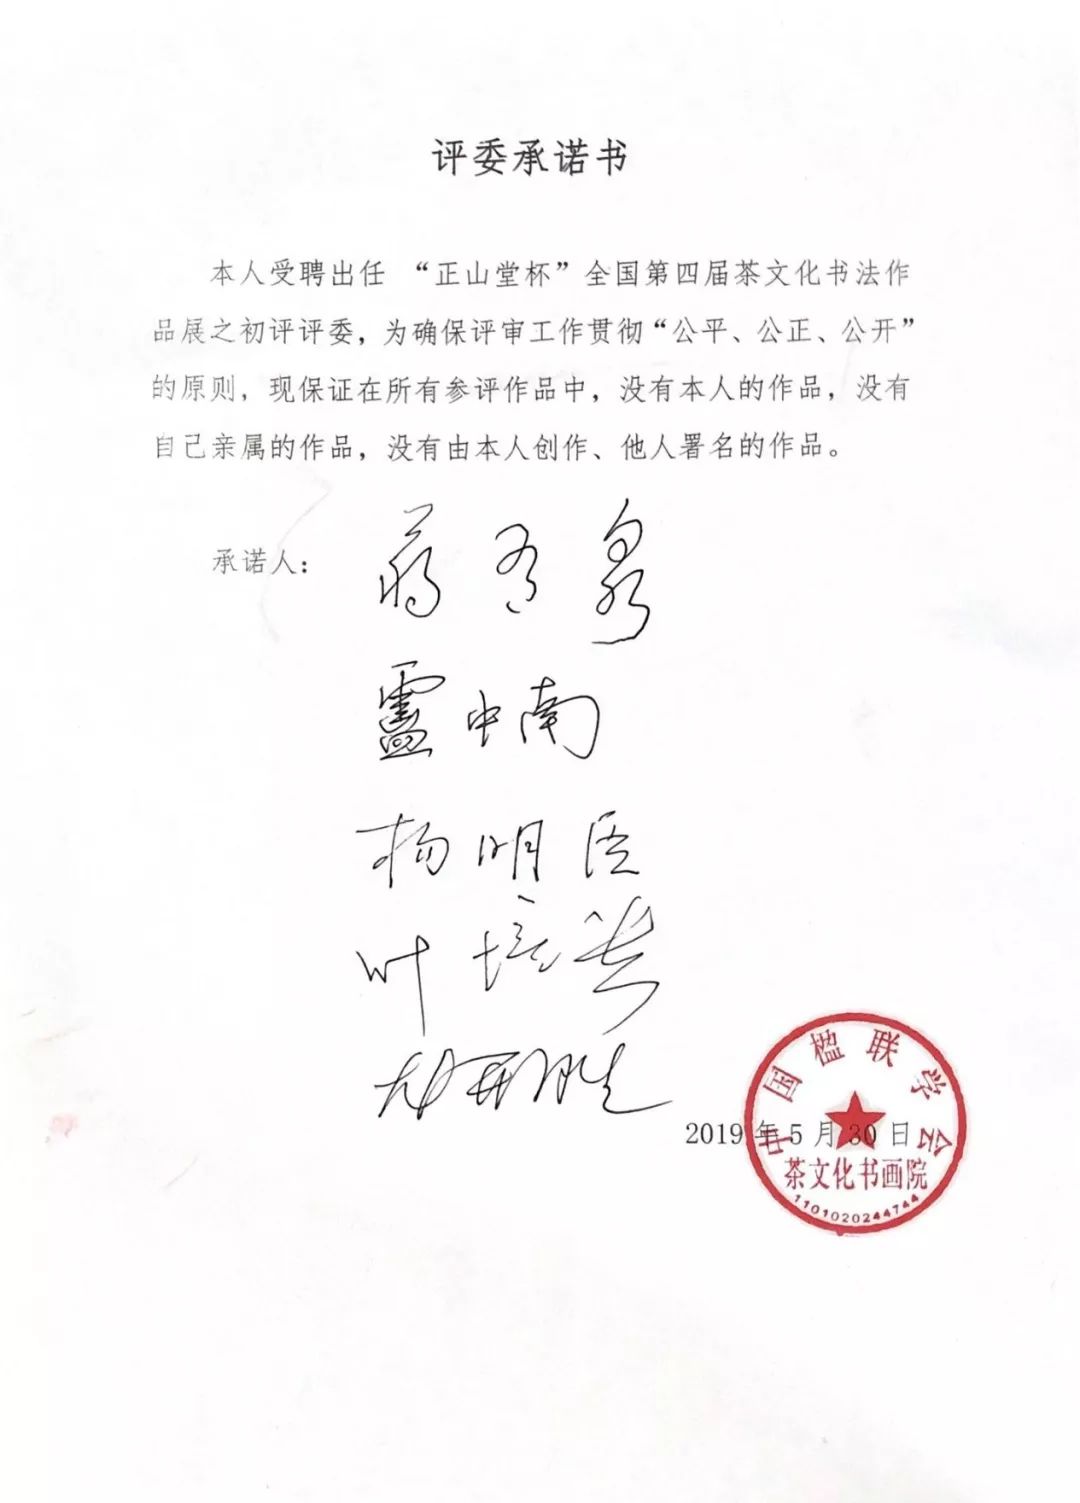 评委承诺书
本人受聘出任 “正山堂杯”全国第四届茶文化书法作
品展之初评评委，为确保评审工作贯彻“公平、公正、公开”
的原则，现保证在所有参评作品中，没有本人的作品，没有
自己亲属的作品，没有由本人创作、他人署名的作品。
承诺人：
盧中南
杨明臣
叶培贵
2019年5月30日
中国楹联学会
茶文化书画院
1101020244744